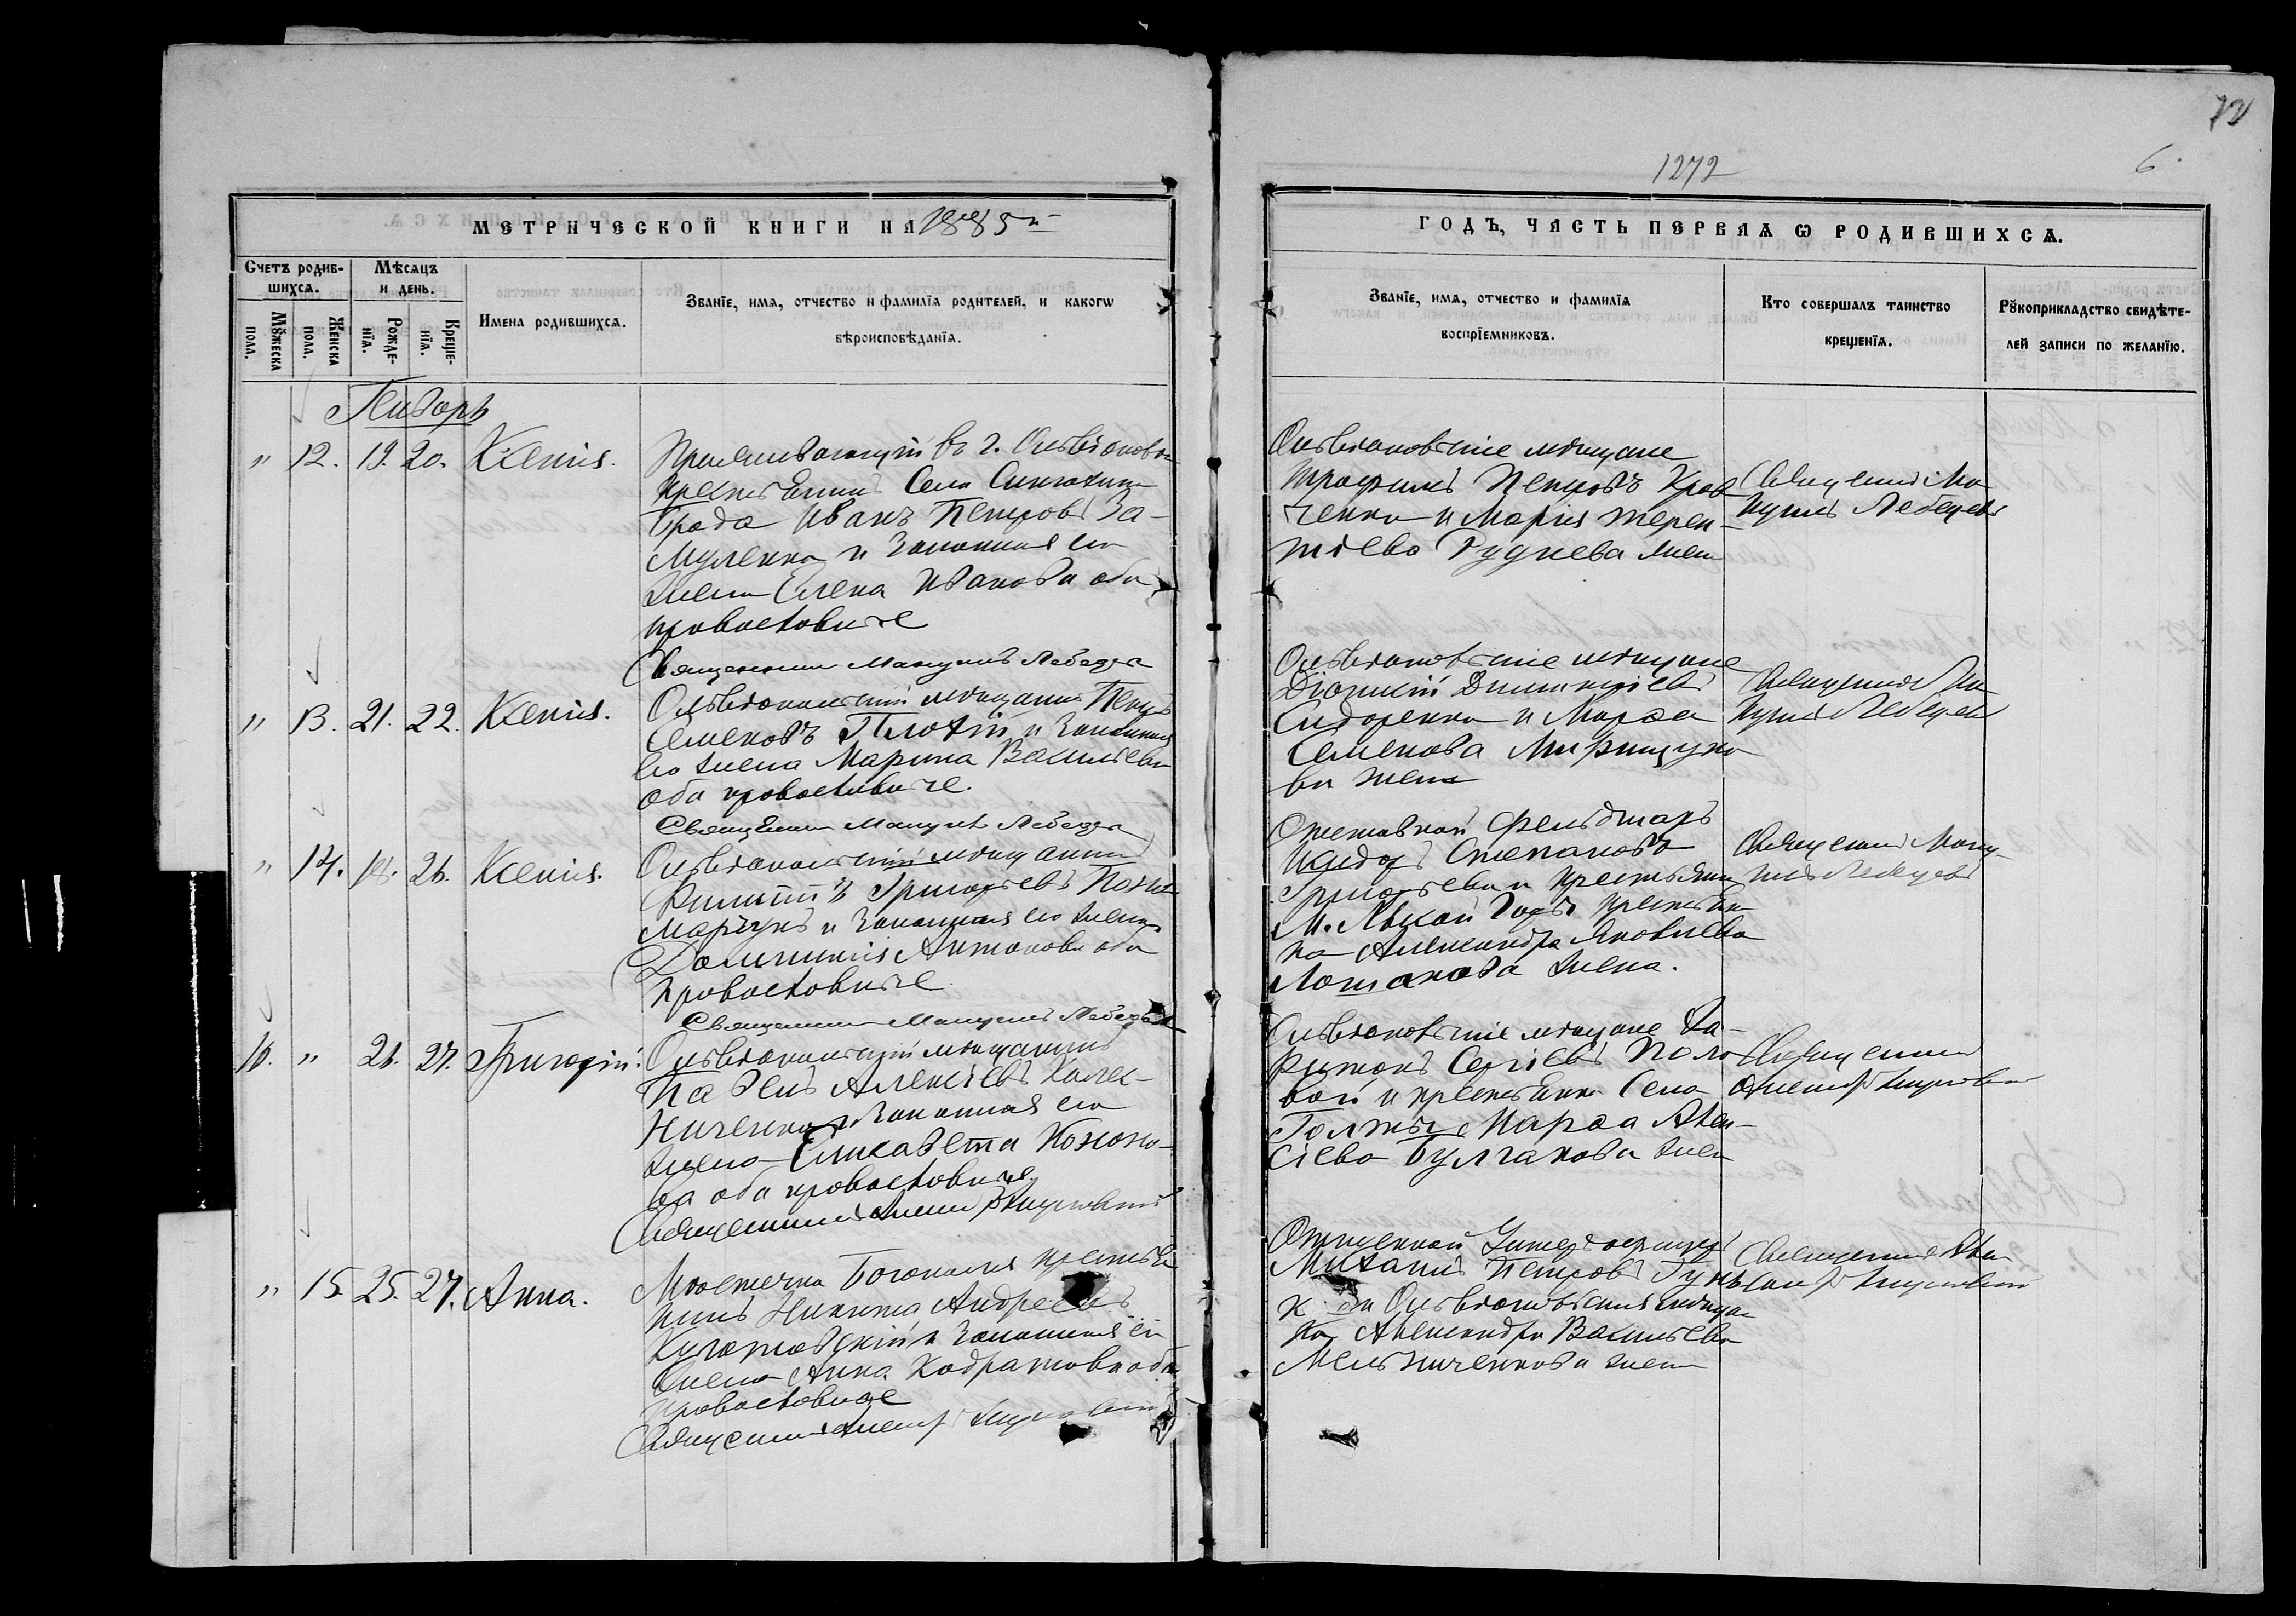 72
1272
6.
МЕТРИЧЕСКОЙ КНИГИ НА 1885й
ГОДЪ, ЧАСТЬ ПЕРВАЯ Ѡ РОДИВШИХСѦ.
Счетъ родив-
шихсѧ.
Мѣсяцъ
и день.
Мꙋжеска
пола.
Женска
пола.
Рожде-
нїѧ.
Креще-
нїѧ.
Имена родившихсѧ.
Званїе, имѧ, отчество и фамилїѧ родителей, и какогѡ
вѣроисповѣданїѧ.
Званїе, имѧ, отчество и фамилїѧ
воспрїемниковъ.
Кто совершалъ таинство
крещенїѧ.
Рꙋкоприкладство свидѣте-
лей записи по желанїю.
Январь
" 12. 19. 20. Ксенія.
Проживающій въ г. Ольвіополѣ
крестьянинъ Села Синюхина
Брода Иванъ Петровъ За-
муленко и законная его
жена Елена Иванова оба
православные
Священникъ Мануилъ Лебедев
Ольвіопольскіе мѣщане
Трофимъ Петровъ Крав
ченко и Марія Терен-
тіева Руднева жена
Священникъ Ма
нуилъ Лебедевъ
" 13. 21. 22. Ксенія.
Ольвіопольскій мѣщанинъ Петръ
Семеновъ Плохій и законная
его жена Марина Васильева
оба православные.
Священникъ Мануилъ Лебедев
Ольвіопольскіе мѣщане
Діонисій Димитріевъ
Сидоренко и Марѳа
Семенова
ва жена
Священникъ Ма
нуилъ Лебедевъ
" 14. 18. 26. Ксенія.
Ольвіопольскій мѣщанинъ
Филиппъ Григорьевъ
и законная его жена
Домникія Антонова оба
православные
Священникъ Мануилъ Лебедев
Отставной Фельдшеръ
Исидоръ Степановъ
Григорьевъ и
М. Лысой Горы крестьян
ка Александра Яковлева
Лошакова жена.
Священникъ Ману
илъ Лебедевъ
10. " 26. 27. Григорій.
Ольвіопольскій мѣщанинъ
Павелъ Алексіевъ Колес-
ниченко и законная его
жена Елисавета Кононо-
ва оба православные.
Священникъ
Ольвіопольскіе мѣщане Ха-
ритонъ Сергіевъ Поло
вой и крестьянка Села
Голмы Марѳа Алек-
сіева Булгакова жена
Священникъ
" 15. 25. 27. Анна.
Мѣстечка Богополя крестья
нинъ Никита Андреевъ
и законная его
жена Анна Кодратова оба
православные
Священникъ
Отпускной Унтеръ офицеръ
Михаилъ Петровъ
Ольвіопольская мѣщан
ка Александра Васильева
Мельниченкова жена
Священникъ